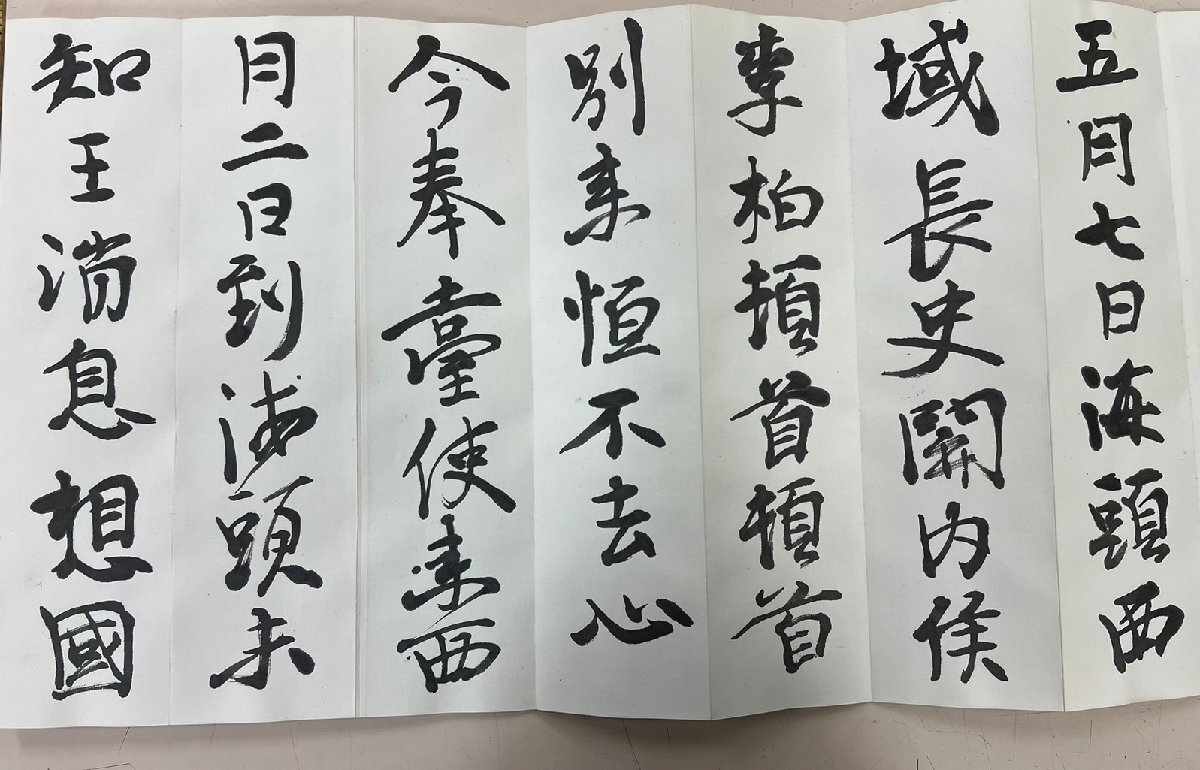 五月七日海頭西
域長史關内侯
李柏頓首頓首
別来恒不去心
今奉臺使来西
月二日到海頭未
知王消息想國